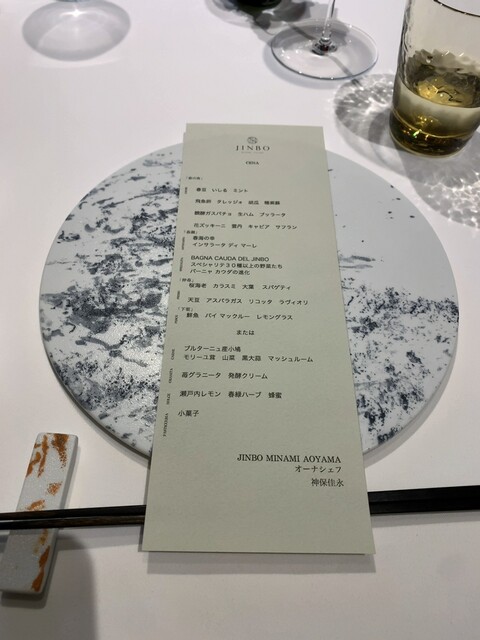 JINBO
CENA
春豆 いしる ミント
飛魚卵 タレッジョ 胡瓜 種麻鞍
麹酵ガスパチョ 生ハム ブッラータ
花ズッキーニ 雲丹 キャビア サフラン
春海の幸
インサラータ ディ マーレ
BAGNA CAUDA DEL JINBO
スペシャリテ30種以上の野菜たち
バーニャ カウダの進化
桜海老 カラスミ 大葉 スパゲティ
天豆 アスパラガス リコッタ ラヴィオリ
鮮魚 パイ マックルー レモングラス
または
ブルターニュ産小鳩
モリーユ茸 山菜 黒大蒜 マッシュルーム
苺グラニータ 発酵クリーム
瀬戸内レモン 春緑ハーブ 蜂蜜
小菓子
JINBO MINAMI AOYAMA
オーナシェフ
神保佳永